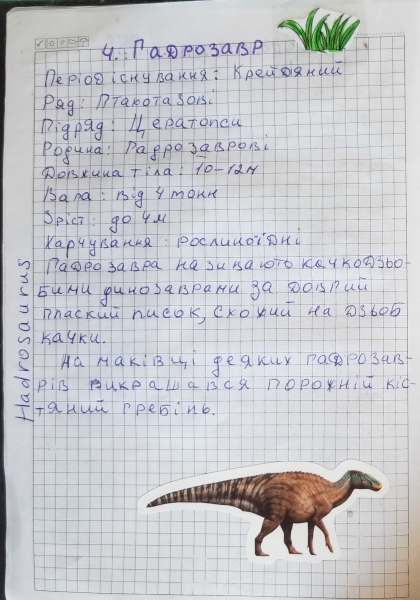 4. Гадрозавр
Період існування: Крейдяний
Ряд: Птахотазові
Підряд: Цератопси
Родина: Гадрозаврові
Довжина тіла: 10-12м
Вага: від 4 тонн
Зріст: до 4м
Харчування: рослиноїдні
Гадрозавра називають качкодзьо-
бими динозаврами за довгий
плаский писок, схожий на дзьоб
качки.
На маківці деяких гадрозав-
рів викрашався порожній кіс-
тяний гребінь.
Hadrosaurus